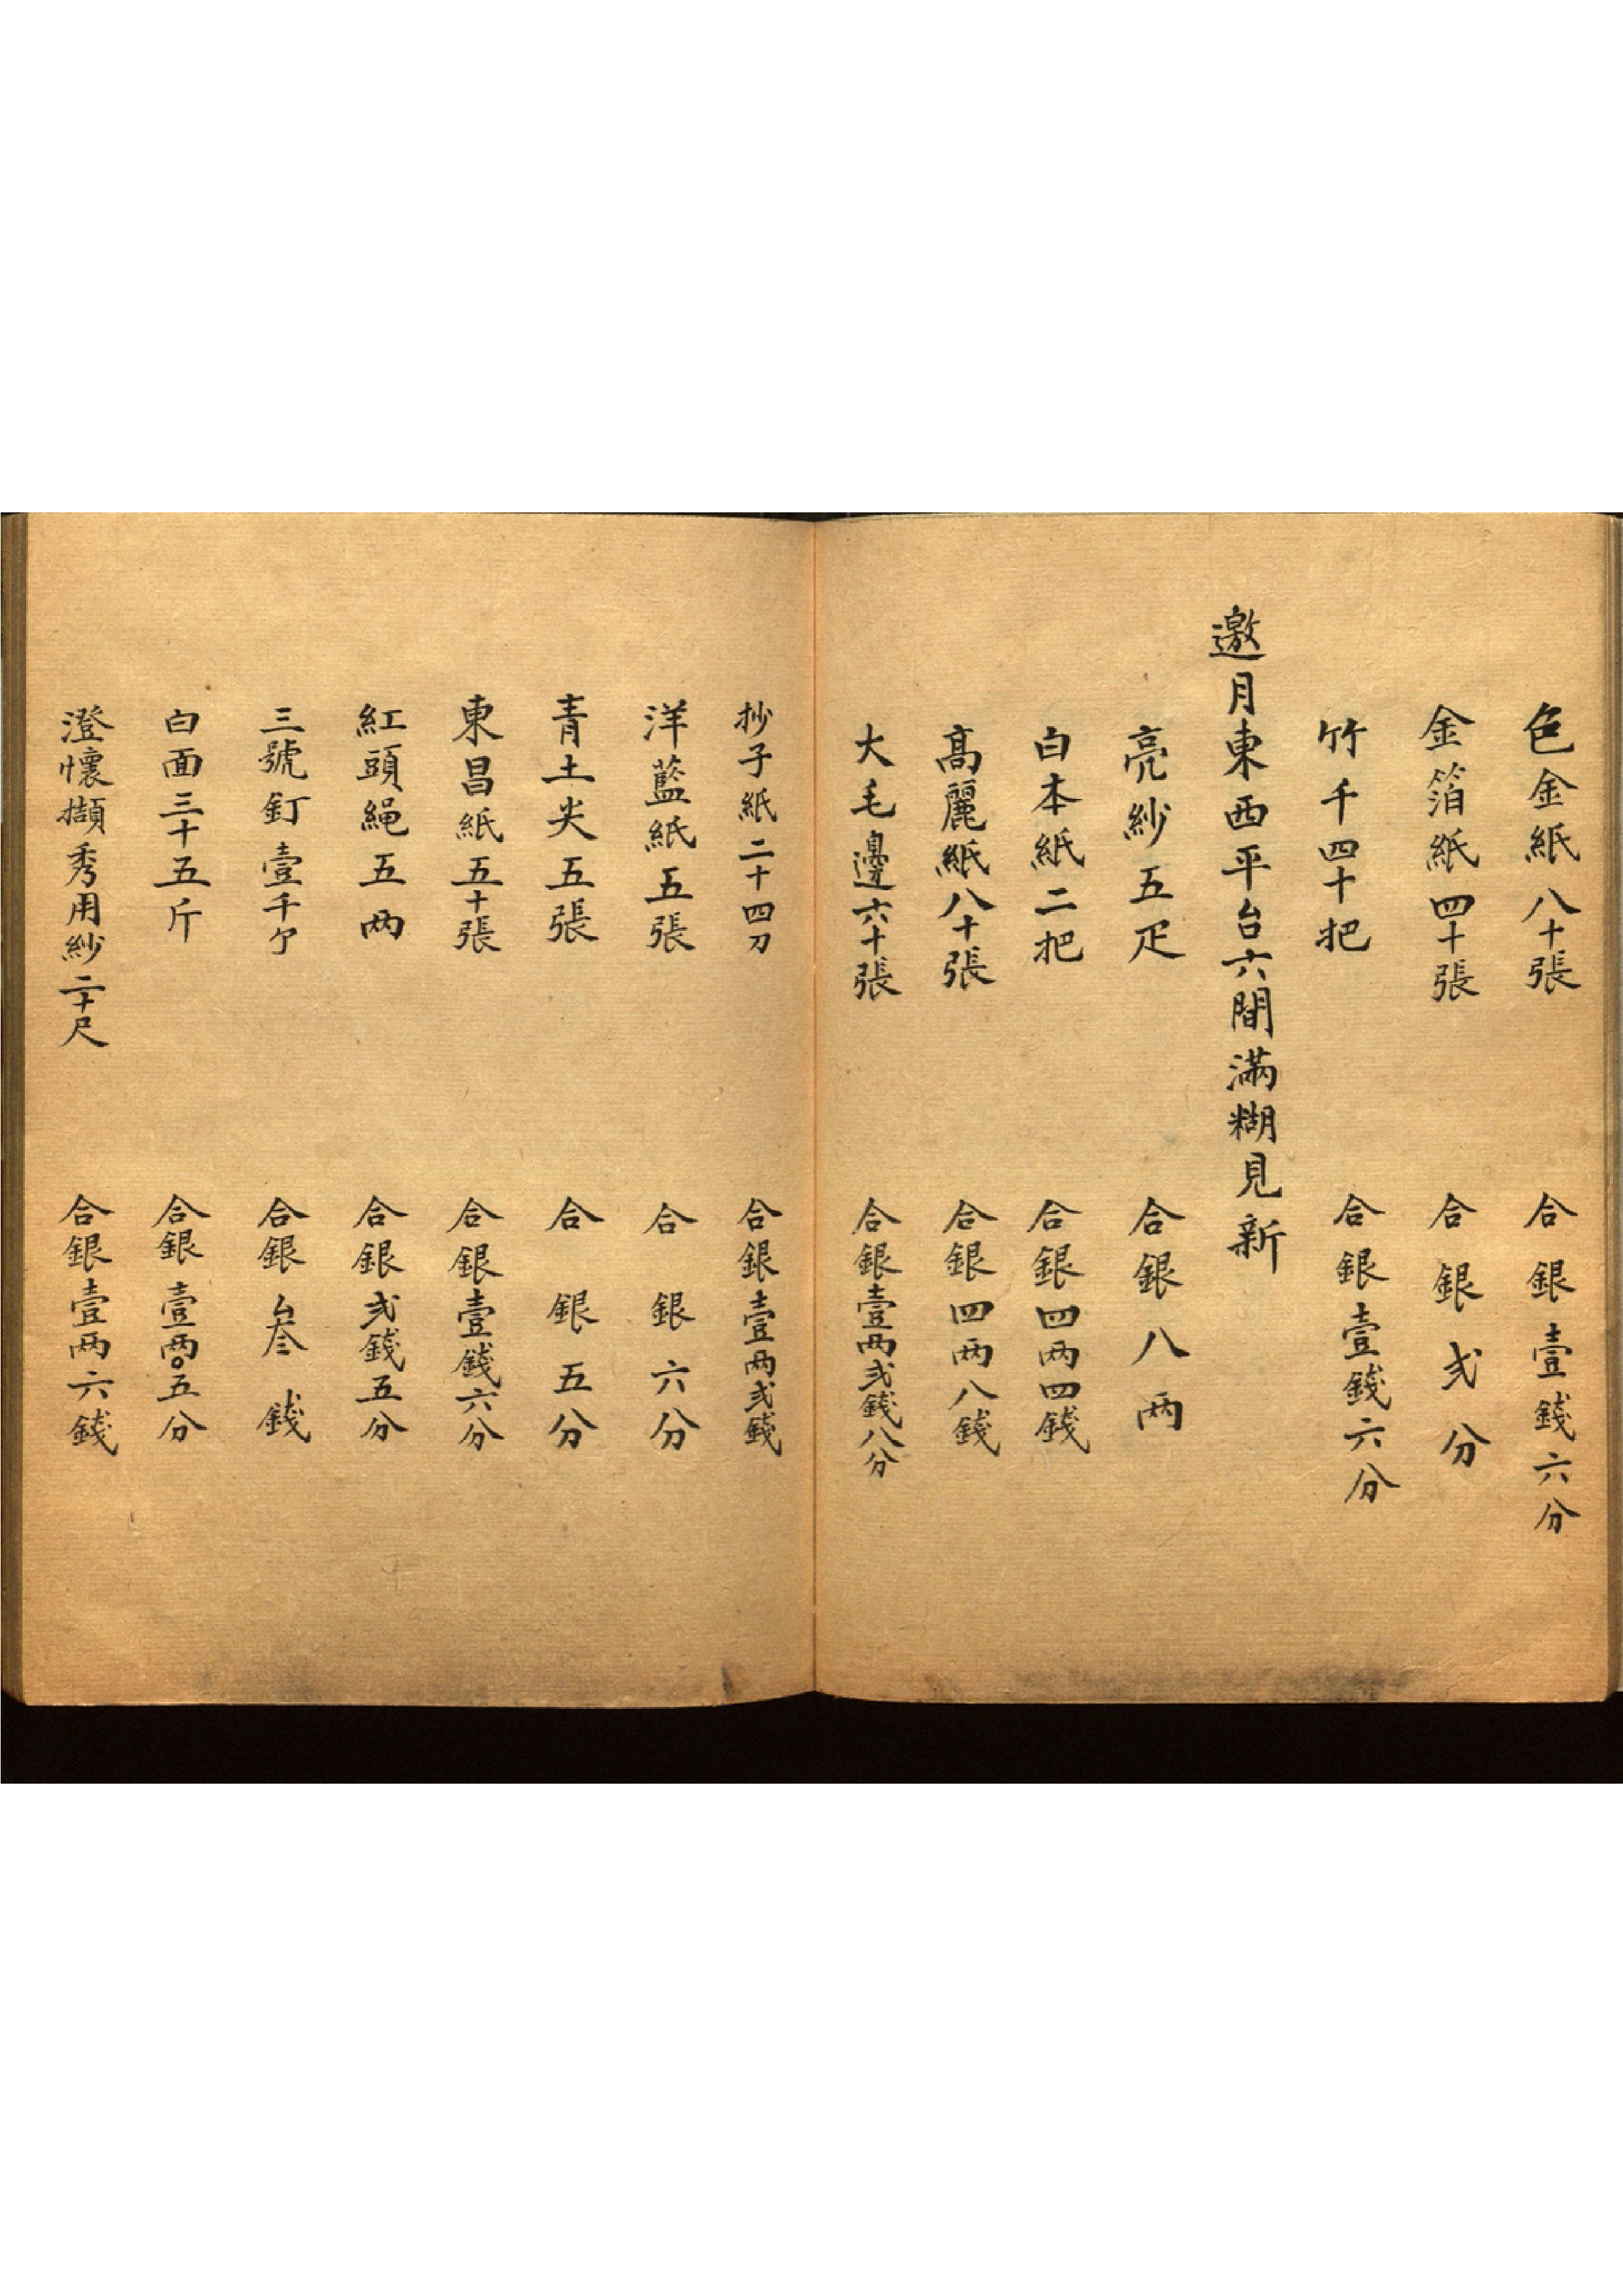 色金紙八十張 合銀壹錢六分
金箔紙四十張 合銀弍分
竹千四十把 合銀壹錢六分
邀月東西平台六間滿糊見新
亮紗五疋 合銀八两
白本紙二把 合銀四两四錢
高麗紙八十張 合銀四两八錢
大毛邊六十張 合銀壹两弍錢八分
抄子紙二十四刀 合銀壹两弍錢
洋藍紙五張 合銀六分
青土尖五張 合銀五分
東昌紙五十張 合銀壹錢六分
紅頭繩五两 合銀弍錢五分
三號釘壹千个 合銀叁錢
白面三十五斤 合銀壹两〇五分
澄懷擷秀用紗二十尺 合銀壹两六錢